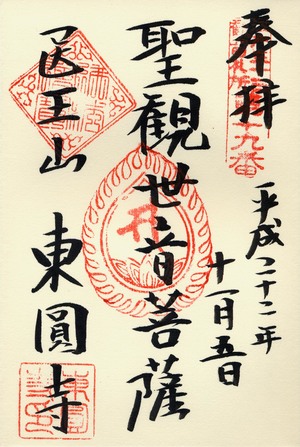 奉拝
平成二十二年
十一月五日
聖観世音菩薩
医王山
東圓寺